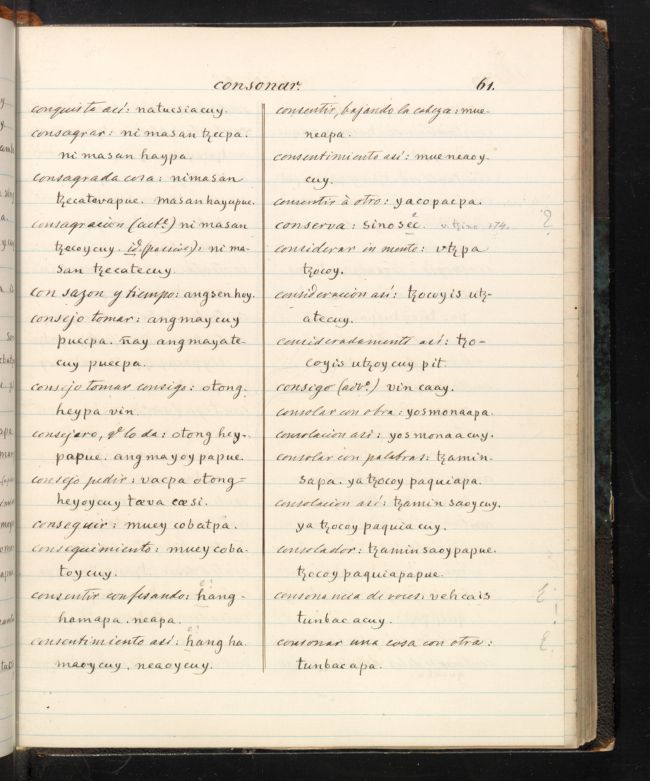 consonar.
61.
conquista así: natucsiacuy.
consagrar: nimasan tzecpa.
nimasan haypa.
consagrada cosa: nimasan
tzecatevapue. masanhayupue.
consagracion (actᵉ.) ni masan
tzecoycuy. idᵉ. (pacivᵉ): nima-
san tzecatecuy.
con sazon y tiempo: angsenhoy.
consejo tomar: angmaycuy
puecpa. ñay angmayate-
cuy puecpa.
consejo tomar consigo: otong-
heypa vin.
consejero, qᵉ lo da: otong hey-
papue. angmayoypapue.
consejo pedir: vacpa otong=
heyoycuy tœva cœsi.
conseguir: muey cobatpa.
conseguimiento: mueycoba-
toycuy.
consentir confesando: hang-
hamapa. neapa.
consentimiento así: hangha
maoycuy, neaoycuy.
consentir, bajando la cabeza: mue-
neapa.
consentimiento así: mueneaoy-
cuy.
consentir à otro: yacopacpa.
conserva: sinosec. v. tzino 174.
considerar in mente: vtzpa
tzocoy.
consideracion así: tzocoyis utz-
atecuy.
consideradamente así: tzo-
coyis utzoycuy pit.
consigo (advᵒ.) vincaay.
consolar con obra: yosmonaapa.
consolacion asi: yosmonaacuy.
consolar con palabras: tzamin-
sapa. yatzocoy paquiapa.
consolacion así: tzamin saoycuy.
ya tzocoy paquiacuy.
consolador: tzaminsaoypapue.
tzocoy paquiapapue.
consonancia de voces: vehcais
tunbacacuy.
consonar una cosa con otra:
tunbacapa.